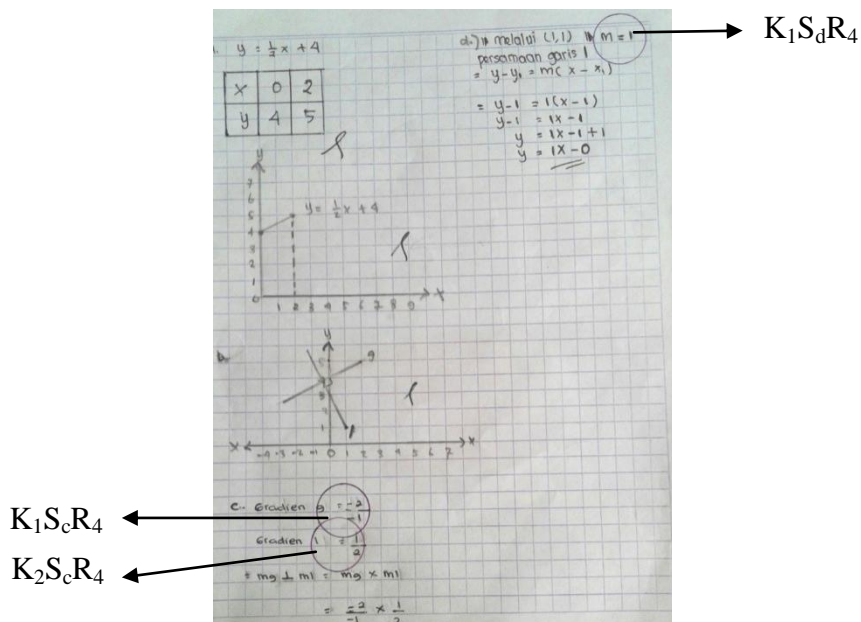 y = 1/2 x + 4
x 0 2
y 4 5
y
7
6
5
4
3
2
1
0
y = 1/2 x + 4
1 2 3 4 5 6 7 8 9 x
b.
y
g
l
x -4 -3 -2 -1 0 1 2 3 4 5 6 7 x
c. Gradien g = -2/-1
Gradien l = 1/2
= mg ⊥ ml = mg × ml
= -2/-1 × 1/2
d.) melalui (1,1) m = 1
persamaan garis l
= y - y1 = m(x - x1)
= y-1 = 1(x-1)
y-1 = 1x-1
y = 1x-1+1
y = 1x-0
K1SdR4
K1ScR4
K2ScR4